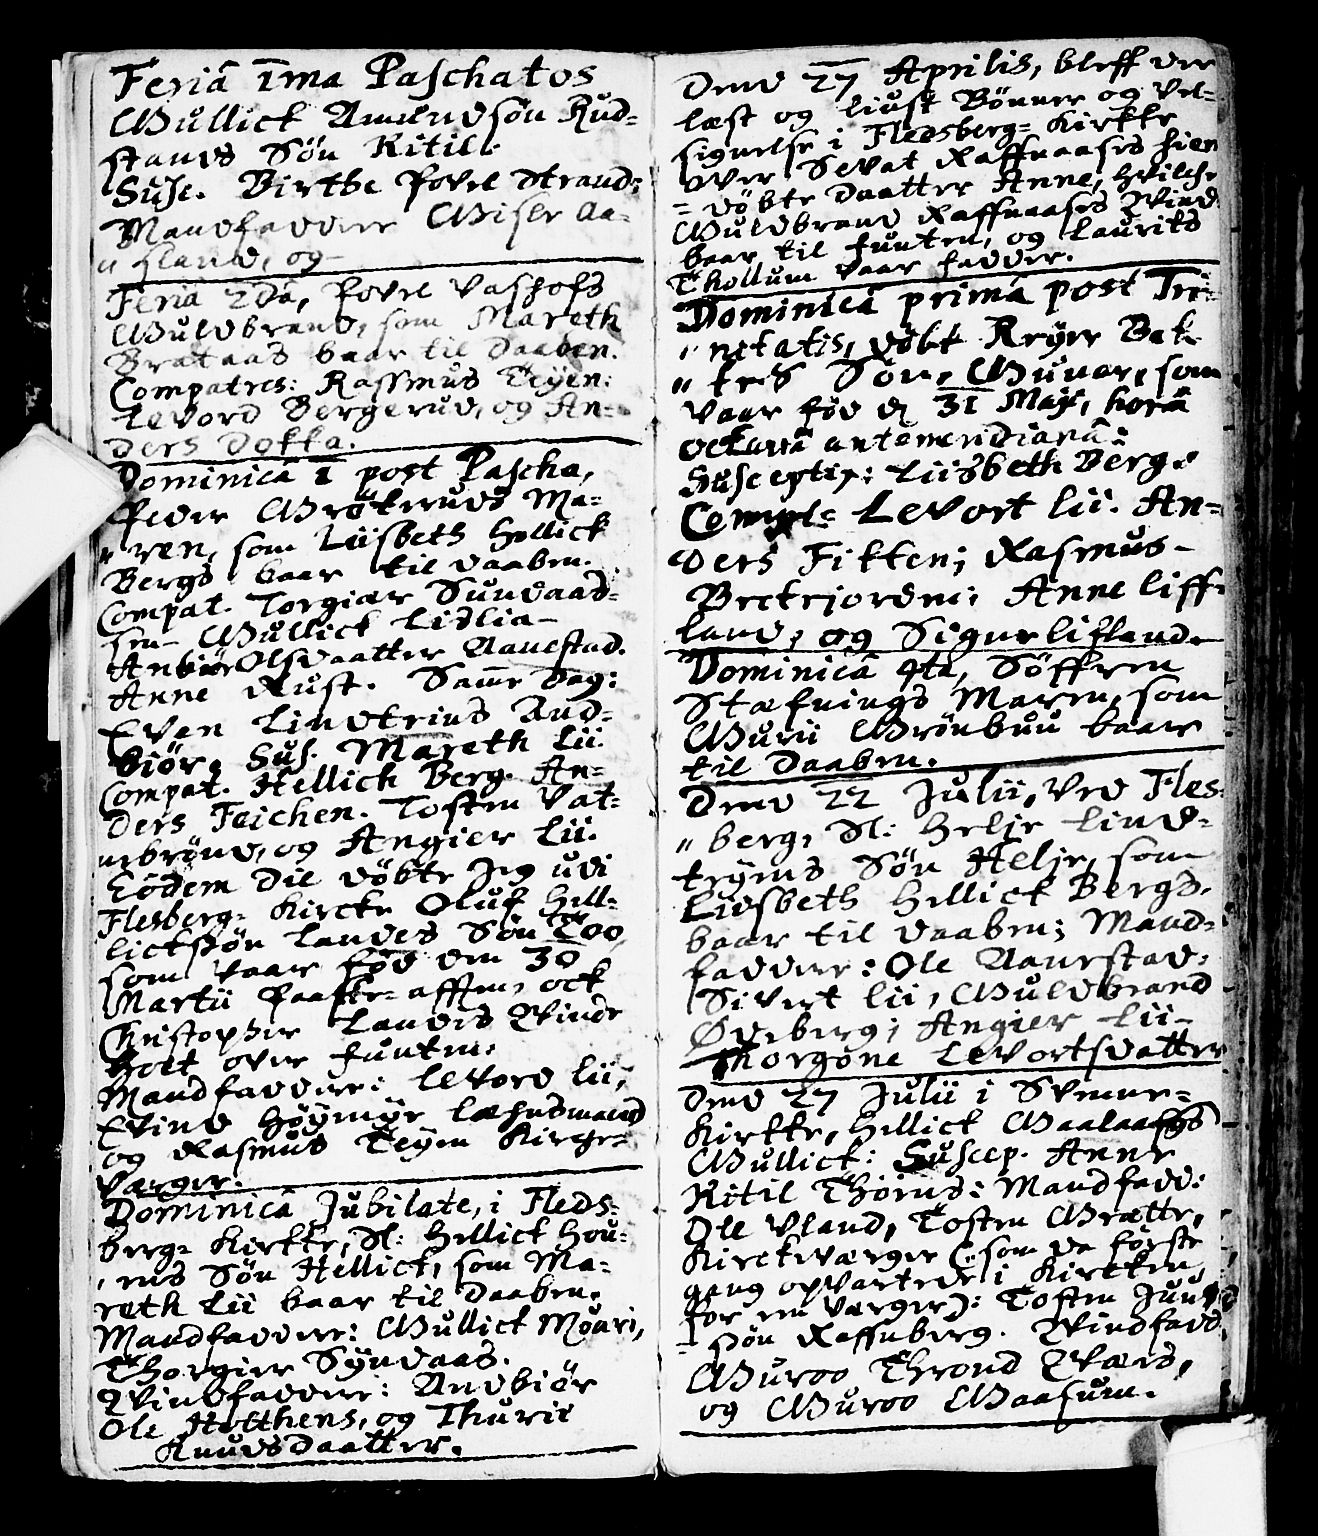 Feriâ 1ma Paschatos
Gullick Amundsøn Rud=
stands Søn Kitil.
Susc. Birthe Povel Strand:
Mandfaddere Gisle Aa=
" sland, og
Feria 2dâ, Povel Vashofs
Guldbrand, som Mareth
Brataas baar til Daaben.
Compatres: Rassmus Teÿen:
Levord Bergerud, og An=
ders Dokka.
Dominicâ 1 post Pascha,
Peder Grøterud's Ma=
" ren, som Liisbeth Hellick
Bergs baar til daaben.
Compat. Torgier Sundaad=
sen Gullick Lidlia
Anbiør Olsdaatter Naue stad.
Anne Rust. Same Dag:
Even Lindtrins And=
biør. Sus. Mareth Lii.
Compat. Hellich Berg. An=
ders Feichen. Tosten Vat=
nebrønd, og Angier Lii.
Eôdem Die døbte Jeg udi
Flesberg= Kircke Oluf Hell=
lickssøn Landes Søn Too,
som vaar fød den 30
Martii Paaske=afften, ock
Christopher Landes Qvinde
holt over funten:
Mandfaddere: Levord Lii,
Evind Høÿmÿr Læhnsmand
og Rasmus Teÿen Kirche=
værger.
Dominicâ Jubilate, i Fleds=
berg= Kirkke, Sl: Hellick Hou=
" ens Søn Hellick, som Ma=
reth Lii baar til Daaben.
Mandfaddere: Gullick Moari,
Thorgier Sÿndaas.
Qvindfaddere: Andbiør
Ole Hotthens, og Thurie
Knudsdaatter.
Dend 27 Aprilis, bleff der
læst og liust Bønner og Vel=
signelse i Flesberg= Kirkke
over Sevat Raffnaases hiem
= døbte Daatter Anne, hvilche
Guldbrand Raffnaases Qvind
baar til funten, og Laurits
Thollum vaar fadder.
Dominicâ primâ post Tri=
" nitatis, døbt Krÿer Bak
" kes Søn, Gunar, som
vaar fød d 31 Maji, horâ
octavâ antemeridianâ:
Susceptix: Liisbeth Berg.
Comp= Levort Lii. An=
ders Fikken; Rasmus
Brekejorden; Anne Liff=
land, og Signe Lifland.
Dominicâ 4ta, Søffren
Stæfnings Maren, som
Gurii Grønbuu baar
til Daaben.
Dend 22 Julii, ved Fles=
" berg, Sl: Helje Lind=
trÿms Søn Helje, som
Liisbeth Hellick Bergs
baar til daaben; Mand=
faddere: Ole Nauestad,
Sivert Lii, Guldbrand
Øveberg; Angier Lii
Thorgone Levortsdatter
Dend 27 Julii i Svenne=
Kirkke, Hellick Gaalaas's
Gullick: Suscep. Anne
Kitil Thørns: Mandfadd:
Ole Uland, Tosten Grætte,
Kirckværger (: som da første
gang opvartede i Kircken,
for en Værger): Tosten Juun
= søn Raffnberg. Qvindfadd.
Guroo Thrond Væds,
og Guroo Gaasum.